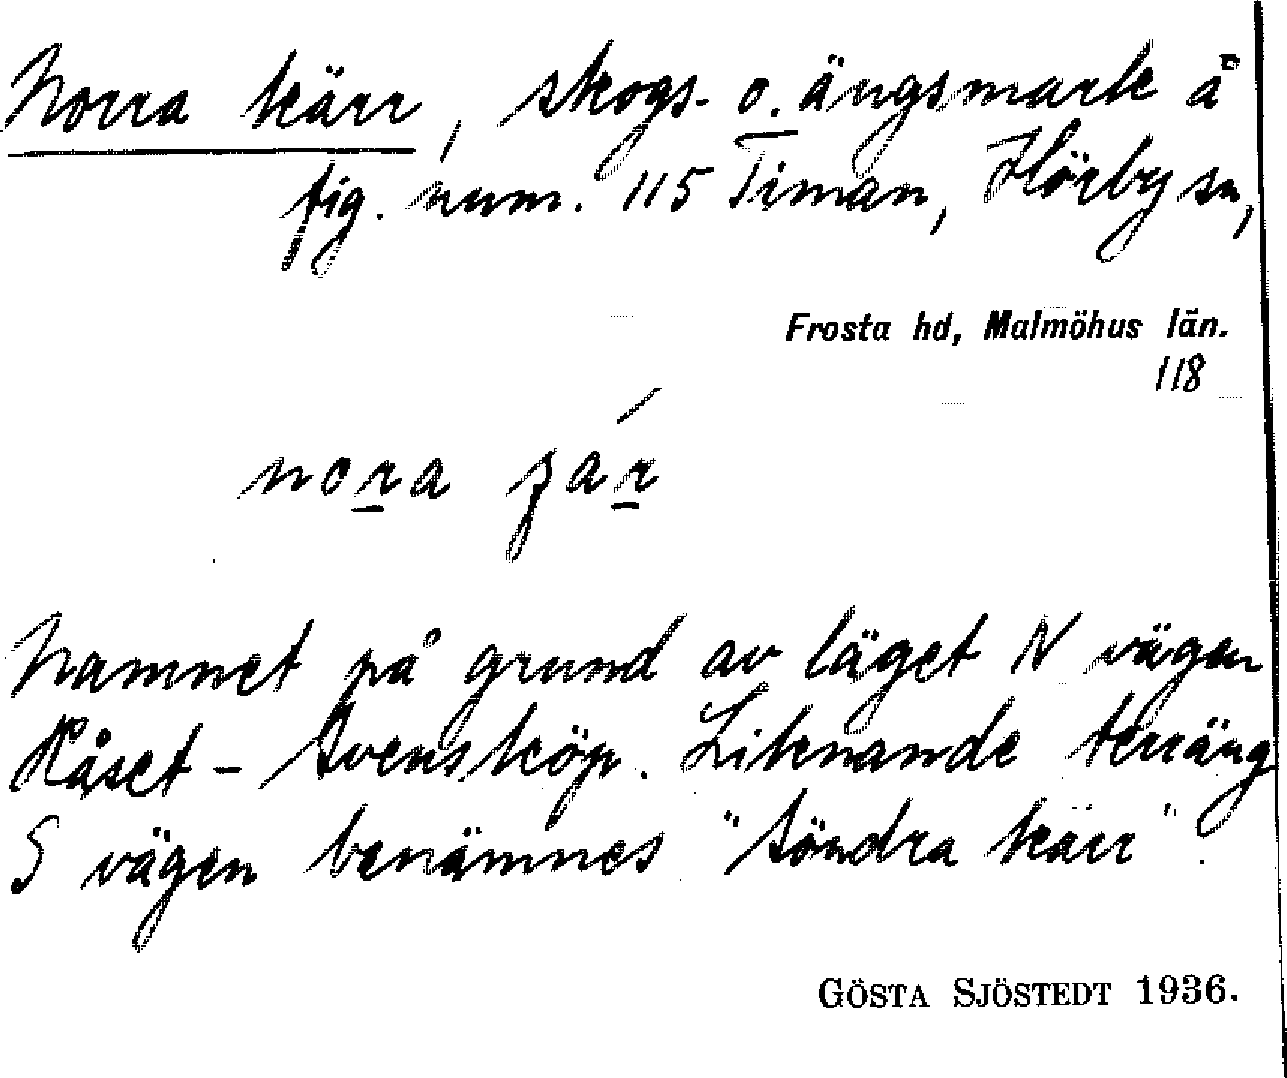 Norra kärr, skogs- o. ängsmark å
fig. num. 115 Timan, Hörby sn,
Frosta hd, Malmöhus län.
118
nora
Namnet på grund av läget N vägen
Råset - Svensköp. Liknande terräng
S vägen benämnes "Söndra kärr".
GÖSTA SJÖSTEDT 1936.